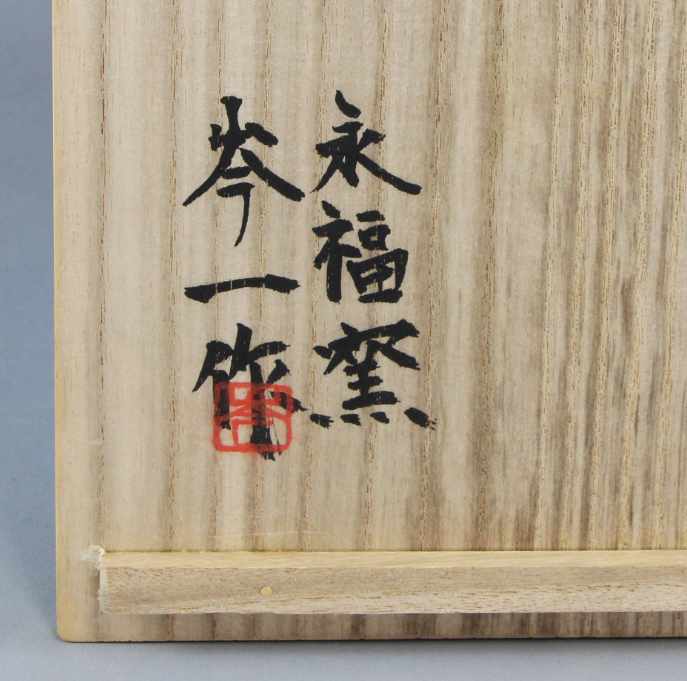 永福窯
岑一作